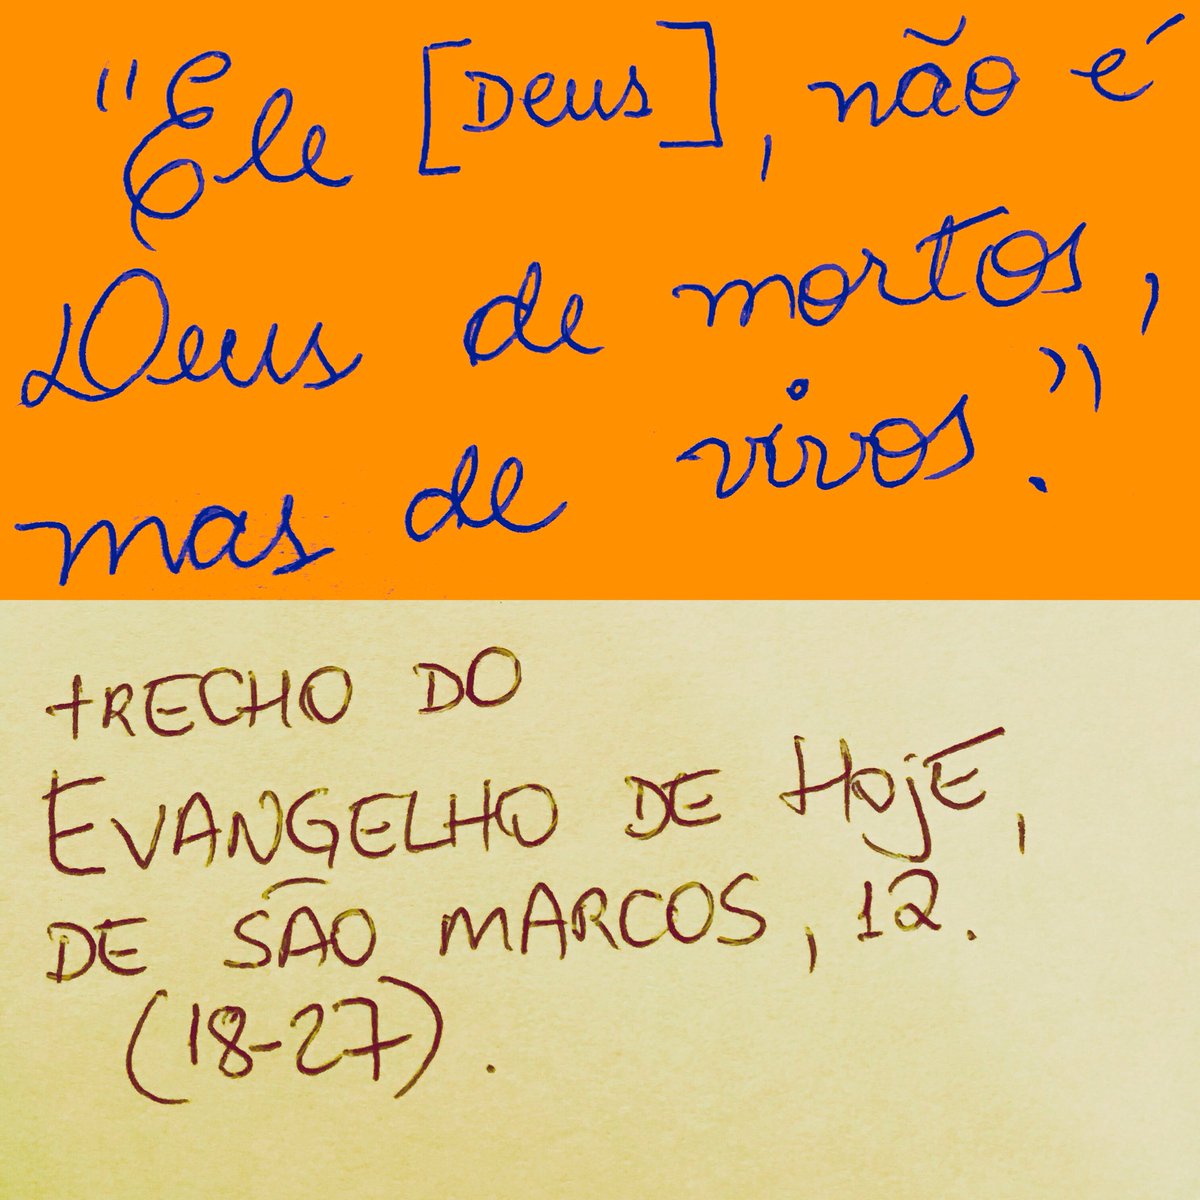 "Ele [Deus], não é
Deus de mortos,
mas de vivos."
tRECHO DO
EVANGELHO DE HOjE,
DE SÃO MARCOS, 12.
(18-27).